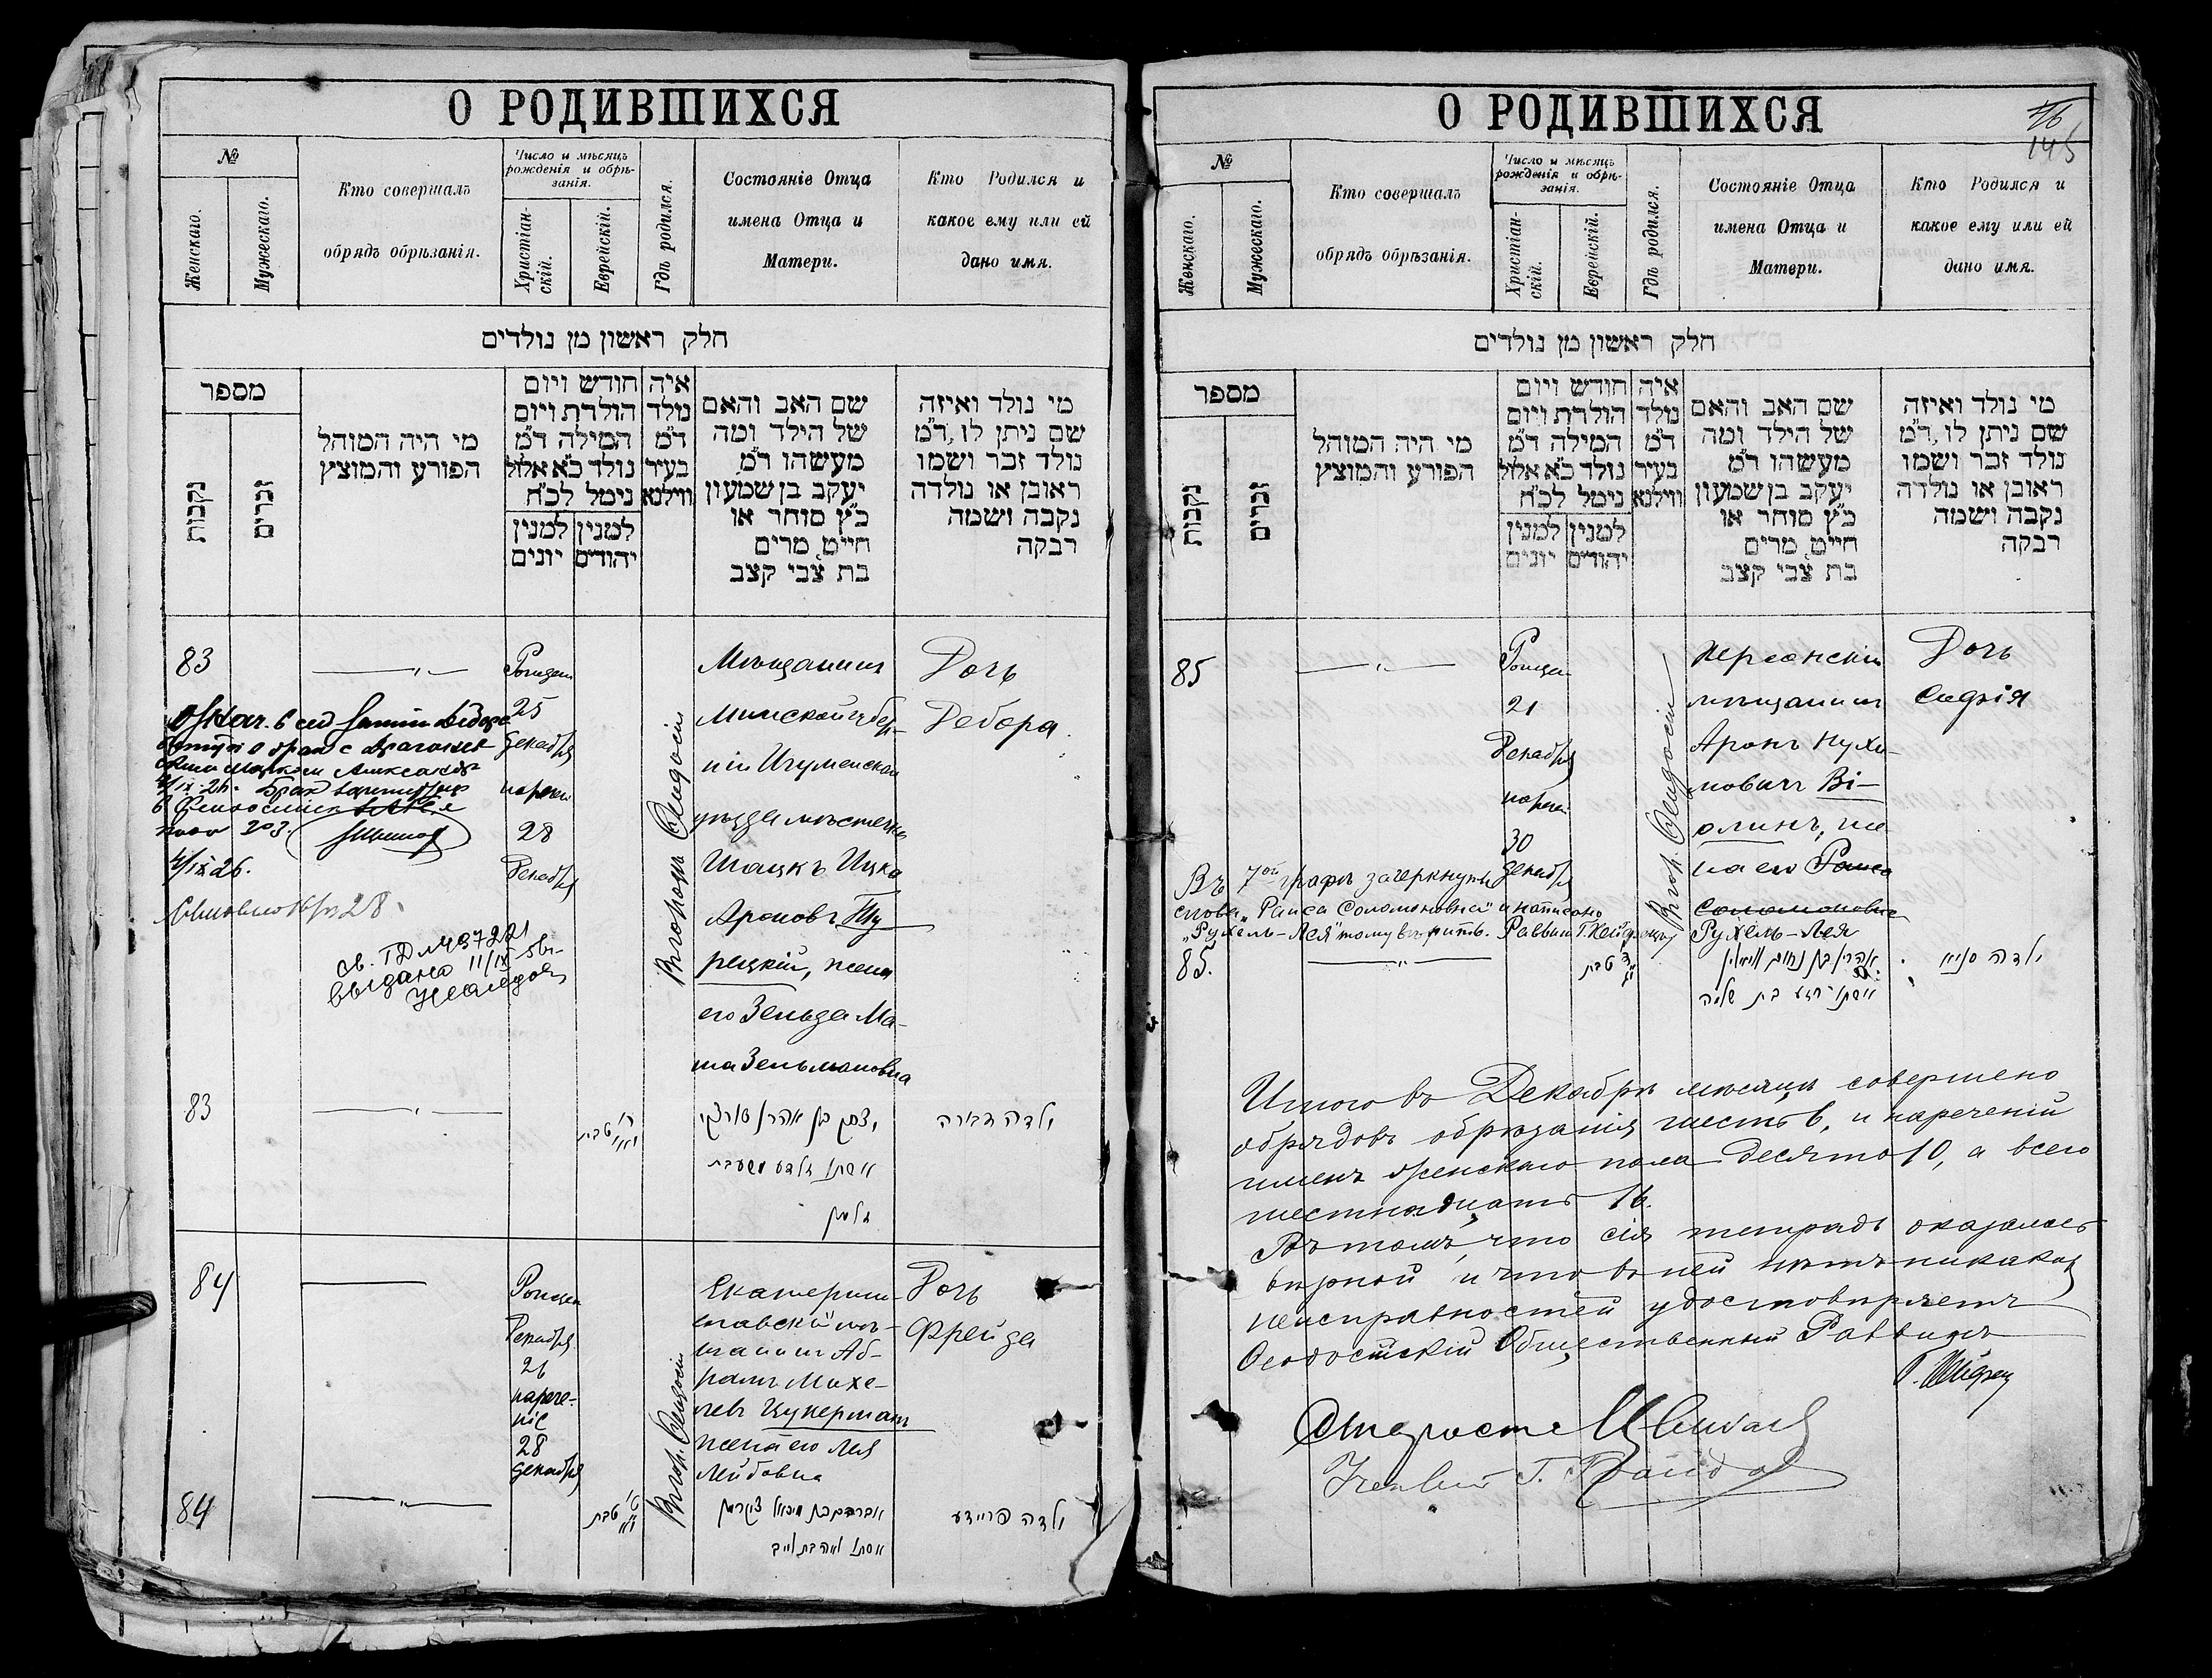 О РОДИВШИХСЯ
№
Женскаго.
Мужескаго.
Кто совершалъ
обрядъ обрѣзанія.
Число и мѣсяцъ
рожденія и обрѣ-
занія.
Христіан-
скій.
Еврейскій.
Гдѣ родился.
Состояніе Отца
имена Отца и
Матери.
Кто Родился и
какое ему или ей
дано имя.
חלק ראשון מן נולדים
מספר
נקבות
זכרים
מי היה המוהל
הפורע והמוצץ
חודש ויום
הולדת ויום
המילה ד״מ
נולד כ״א אלול
נימל לכ״ח
למנין
יהודים
למנין
יונים
איה
נולד
ד״מ
בעיר
ווילנא
שם האב והאם
של הילד ומה
מעשהו ד״מ
יעקב בן שמעון
כ״ץ סוחר או
חייט, מרים
בת צבי קצב
מי נולד ואיזה
שם ניתן לו, ד״מ
נולד זכר ושמו
ראובן או נולדה
נקבה ושמה
רבקה
83
Рожден
25
Декабря
наречен
28
Декабря
В город. Феодосіи
Мѣщанинъ
Минской губер-
ніи Игуменскаго
уѣзда мѣстечка
Шацкъ Ицко
Ароновъ Ту-
рецкій, жена
его Зельда Ма-
ша Зельмановна
Дочь
Дебора.
о брак с
4/IX-26. Брак
203.
4/IX 26.
св. ГД №37221
выдано 11/IX-51г.
83
טבת
יצחק בן אהרן טורצקי
ואשתו זלדע מאשע בת
זלמן
ילדה דבורה
84
Рожден
Декабря
26
нарече-
ніе
28
Декабря
В гор. Феодосіи
Екатерино-
славскій мѣ-
щанинъ Аб-
рамъ Михе-
левъ Цукерманъ
жена его Лея
Лейбовна
Дочь
Фрейда
84
טבת
אברהם בן מיכאל צוקרמן
ואשתו לאה בת לייב
ילדה פריידע
О РОДИВШИХСЯ
76
145
№
Женскаго.
Мужескаго.
Кто совершалъ
обрядъ обрѣзанія.
Число и мѣсяцъ
рожденія и обрѣ-
занія.
Христіан-
скій.
Еврейскій.
Гдѣ родился.
Состояніе Отца
имена Отца и
Матери.
Кто Родился и
какое ему или ей
дано имя.
חלק ראשון מן נולדים
מספר
נקבות
זכרים
מי היה המוהל
הפורע והמוצץ
חודש ויום
הולדת ויום
המילה ד״מ
נולד כ״א אלול
נימל לכ״ח
למנין
יהודים
למנין
יונים
איה
נולד
ד״מ
בעיר
ווילנא
שם האב והאם
של הילד ומה
מעשהו ד״מ
יעקב בן שמעון
כ״ץ סוחר או
חייט, מרים
בת צבי קצב
מי נולד ואיזה
שם ניתן לו, ד״מ
נולד זכר ושמו
ראובן או נולדה
נקבה ושמה
רבקה
85
Рожден
21
Декабря
наречен
30
Декабря
В гор. Феодосіи
Херсонскій
мѣщанинъ
Аронъ Нухи-
мовичъ Ві-
олинъ, же-
на его Раиса
Соломоновна
Рухель-Лея
Дочь
Софія
Въ 7ой графѣ зачеркнуты
слова „Раиса Соломоновна" и написано
„Рухель-Лея" тому вѣрить. Раввинъ
85.
טבת
אהרן בן נחום
ואשתו בת שלמה
ילדה סוניא
Итого въ Декабрѣ мѣсяцѣ совершено
обрядовъ обрѣзанія шесть 6, и нареченій
именъ женскаго пола десять 10, а всего
шестнадцать 16.
Въ томъ, что сія тетрадь оказалась
вѣрной и что въ ней нѣтъ никакой
неисправностей удостовѣряетъ
Феодосійскій Общественный Раввинъ
Староста